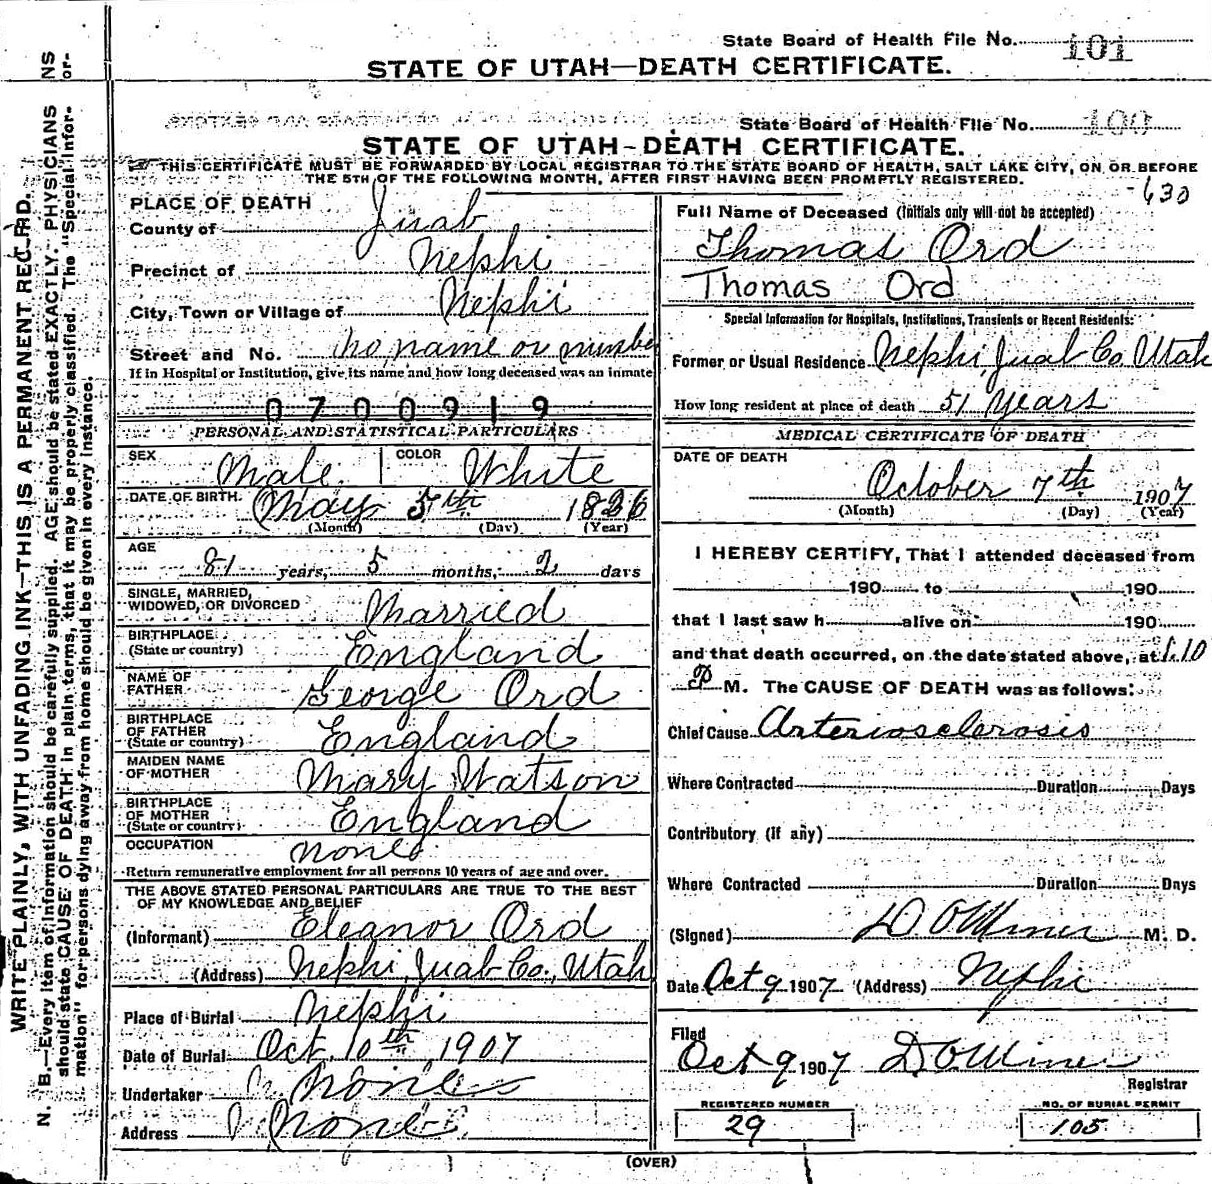 State Board of Health File No. 101
STATE OF UTAH—DEATH CERTIFICATE.
State Board of Health File No. 100
STATE OF UTAH-DEATH CERTIFICATE.
THIS CERTIFICATE MUST BE FORWARDED BY LOCAL REGISTRAR TO THE STATE BOARD OF HEALTH, SALT LAKE CITY, ON OR BEFORE
THE 5TH OF THE FOLLOWING MONTH, AFTER FIRST HAVING BEEN PROMPTLY REGISTERED.
-630
PLACE OF DEATH
County of Juab
Precinct of Nephi
City, Town or Village of Nephi
Street and No. no name or numbe
If in Hospital or Institution, give its name and how long deceased was an inmate
0700919
PERSONAL AND STATISTICAL PARTICULARS
SEX Male COLOR White
DATE OF BIRTH May 5th 1826
(Month) (Day) (Year)
AGE
81 years, 5 months, 2 days
SINGLE, MARRIED,
WIDOWED, OR DIVORCED Married
BIRTHPLACE
(State or country) England
NAME OF
FATHER George Ord
BIRTHPLACE
OF FATHER
(State or country) England
MAIDEN NAME
OF MOTHER Mary Watson
BIRTHPLACE
OF MOTHER
(State or country) England
OCCUPATION none
Return remunerative employment for all persons 10 years of age and over.
THE ABOVE STATED PERSONAL PARTICULARS ARE TRUE TO THE BEST
OF MY KNOWLEDGE AND BELIEF
(Informant) Eleanor Ord
(Address) Nephi, Juab Co., Utah
Place of Burial Nephi
Date of Burial Oct. 10th, 1907
Undertaker None
Address None
Full Name of Deceased (Initials only will not be accepted)
Thomas Ord
Thomas Ord
Special Information for Hospitals, Institutions, Transients or Recent Residents:
Former or Usual Residence Nephi, Juab Co. Utah
How long resident at place of death 51 years
MEDICAL CERTIFICATE OF DEATH
DATE OF DEATH
October 7th 1907
(Month) (Day) (Year)
I HEREBY CERTIFY, That I attended deceased from
190 to 190
that I last saw h alive on 190
and that death occurred, on the date stated above, at 1.10
P M. The CAUSE OF DEATH was as follows:
Chief Cause Arteriosclerosis
Where Contracted Duration Days
Contributory (if any)
Where Contracted Duration Days
(Signed) D O Miner M. D.
Date Oct 9 1907 (Address) Nephi
Filed
Oct 9 1907 D O Miner
Registrar
REGISTERED NUMBER
29
NO. OF BURIAL PERMIT
105
(OVER)
WRITE PLAINLY, WITH UNFADING INK—THIS IS A PERMANENT RECORD.
N. B.—Every item of information should be carefully supplied. AGE should be stated EXACTLY. PHYSICIANS
should state CAUSE OF DEATH in plain terms, that it may be properly classified. The "Special Infor-
mation" for persons dying away from home should be given in every instance.
NS
or-